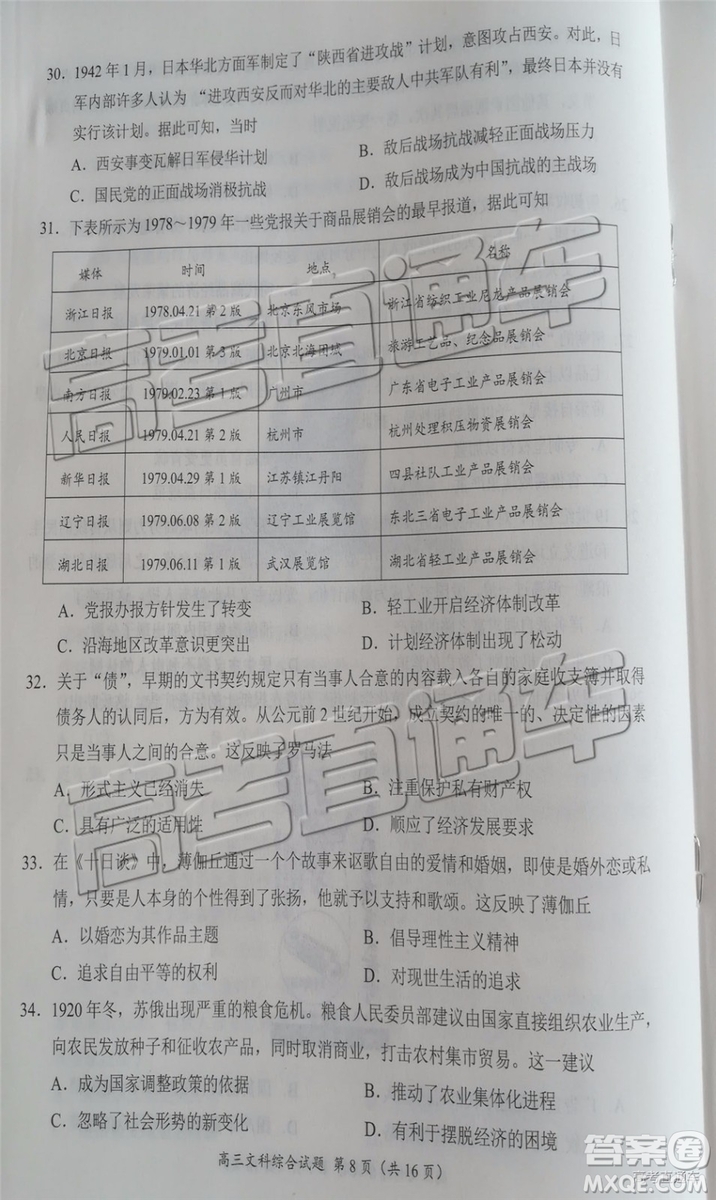 30．1942 年 1 月，日本华北方面军制定了“陕西省进攻战”计划，意图攻占西安。对此，日
军内部许多人认为 “进攻西安反而对华北的主要敌人中共军队有利”，最终日本并没有
实行该计划。据此可知，当时
A．西安事变瓦解日军侵华计划 B．敌后战场抗战减轻正面战场压力
C．国民党的正面战场消极抗战 D．敌后战场成为中国抗战的主战场
31．下表所示为 1978～1979 年一些党报关于商品展销会的最早报道，据此可知
媒体 时间 地点 名称
浙江日报 1978.04.21 第 2 版 北京东风市场 浙江省纺织工业尼龙产品展销会
北京日报 1979.01.01 第 3 版 北京北海团城 旅游工艺品、纪念品展销会
南方日报 1979.02.23 第 1 版 广州市 广东省电子工业产品展销会
人民日报 1979.04.21 第 2 版 杭州市 杭州处理积压物资展销会
新华日报 1979.04.29 第 1 版 江苏镇江丹阳 四县社队工业产品展销会
辽宁日报 1979.06.08 第 2 版 辽宁工业展览馆 东北三省电子工业产品展销会
湖北日报 1979.06.11 第 1 版 武汉展览馆 湖北省轻工业产品展销会
A．党报办报方针发生了转变 B．轻工业开启经济体制改革
C．沿海地区改革意识更突出 D．计划经济体制出现了松动
32．关于“债”，早期的文书契约规定只有当事人合意的内容载入各自的家庭收支簿并取得
债务人的认同后，方为有效。从公元前 2 世纪开始，成立契约的唯一的、决定性的因素
只是当事人之间的合意。这反映了罗马法
A．形式主义已经消失 B．注重保护私有财产
C．具有广泛的适用性 D．顺应了经济发展要求
33．在《十日谈》中，薄伽丘通过一个个故事来讴歌自由的爱情和婚姻，即使是婚外恋或私
情，只要是人本身的个性得到了张扬，他就予以支持和歌颂。这反映了薄伽丘
A．以婚恋为其作品主题 B．倡导理性主义精神
C．追求自由平等的权利 D．对现世生活的追求
34．1920 年冬，苏俄出现严重的粮食危机。粮食人民委员部建议由国家直接组织农业生产，
向农民发放种子和征收农产品，同时取消商业，打击农村集市贸易。这一建议
A．成为国家调整政策的依据 B．推动了农业集体化进程
C．忽略了社会形势的新变化 D．有利于摆脱经济的困境
高三文科综合试题 第 8 页（共 16 页）
高考直通车
高考直通车
答案圈
MXQE.COM